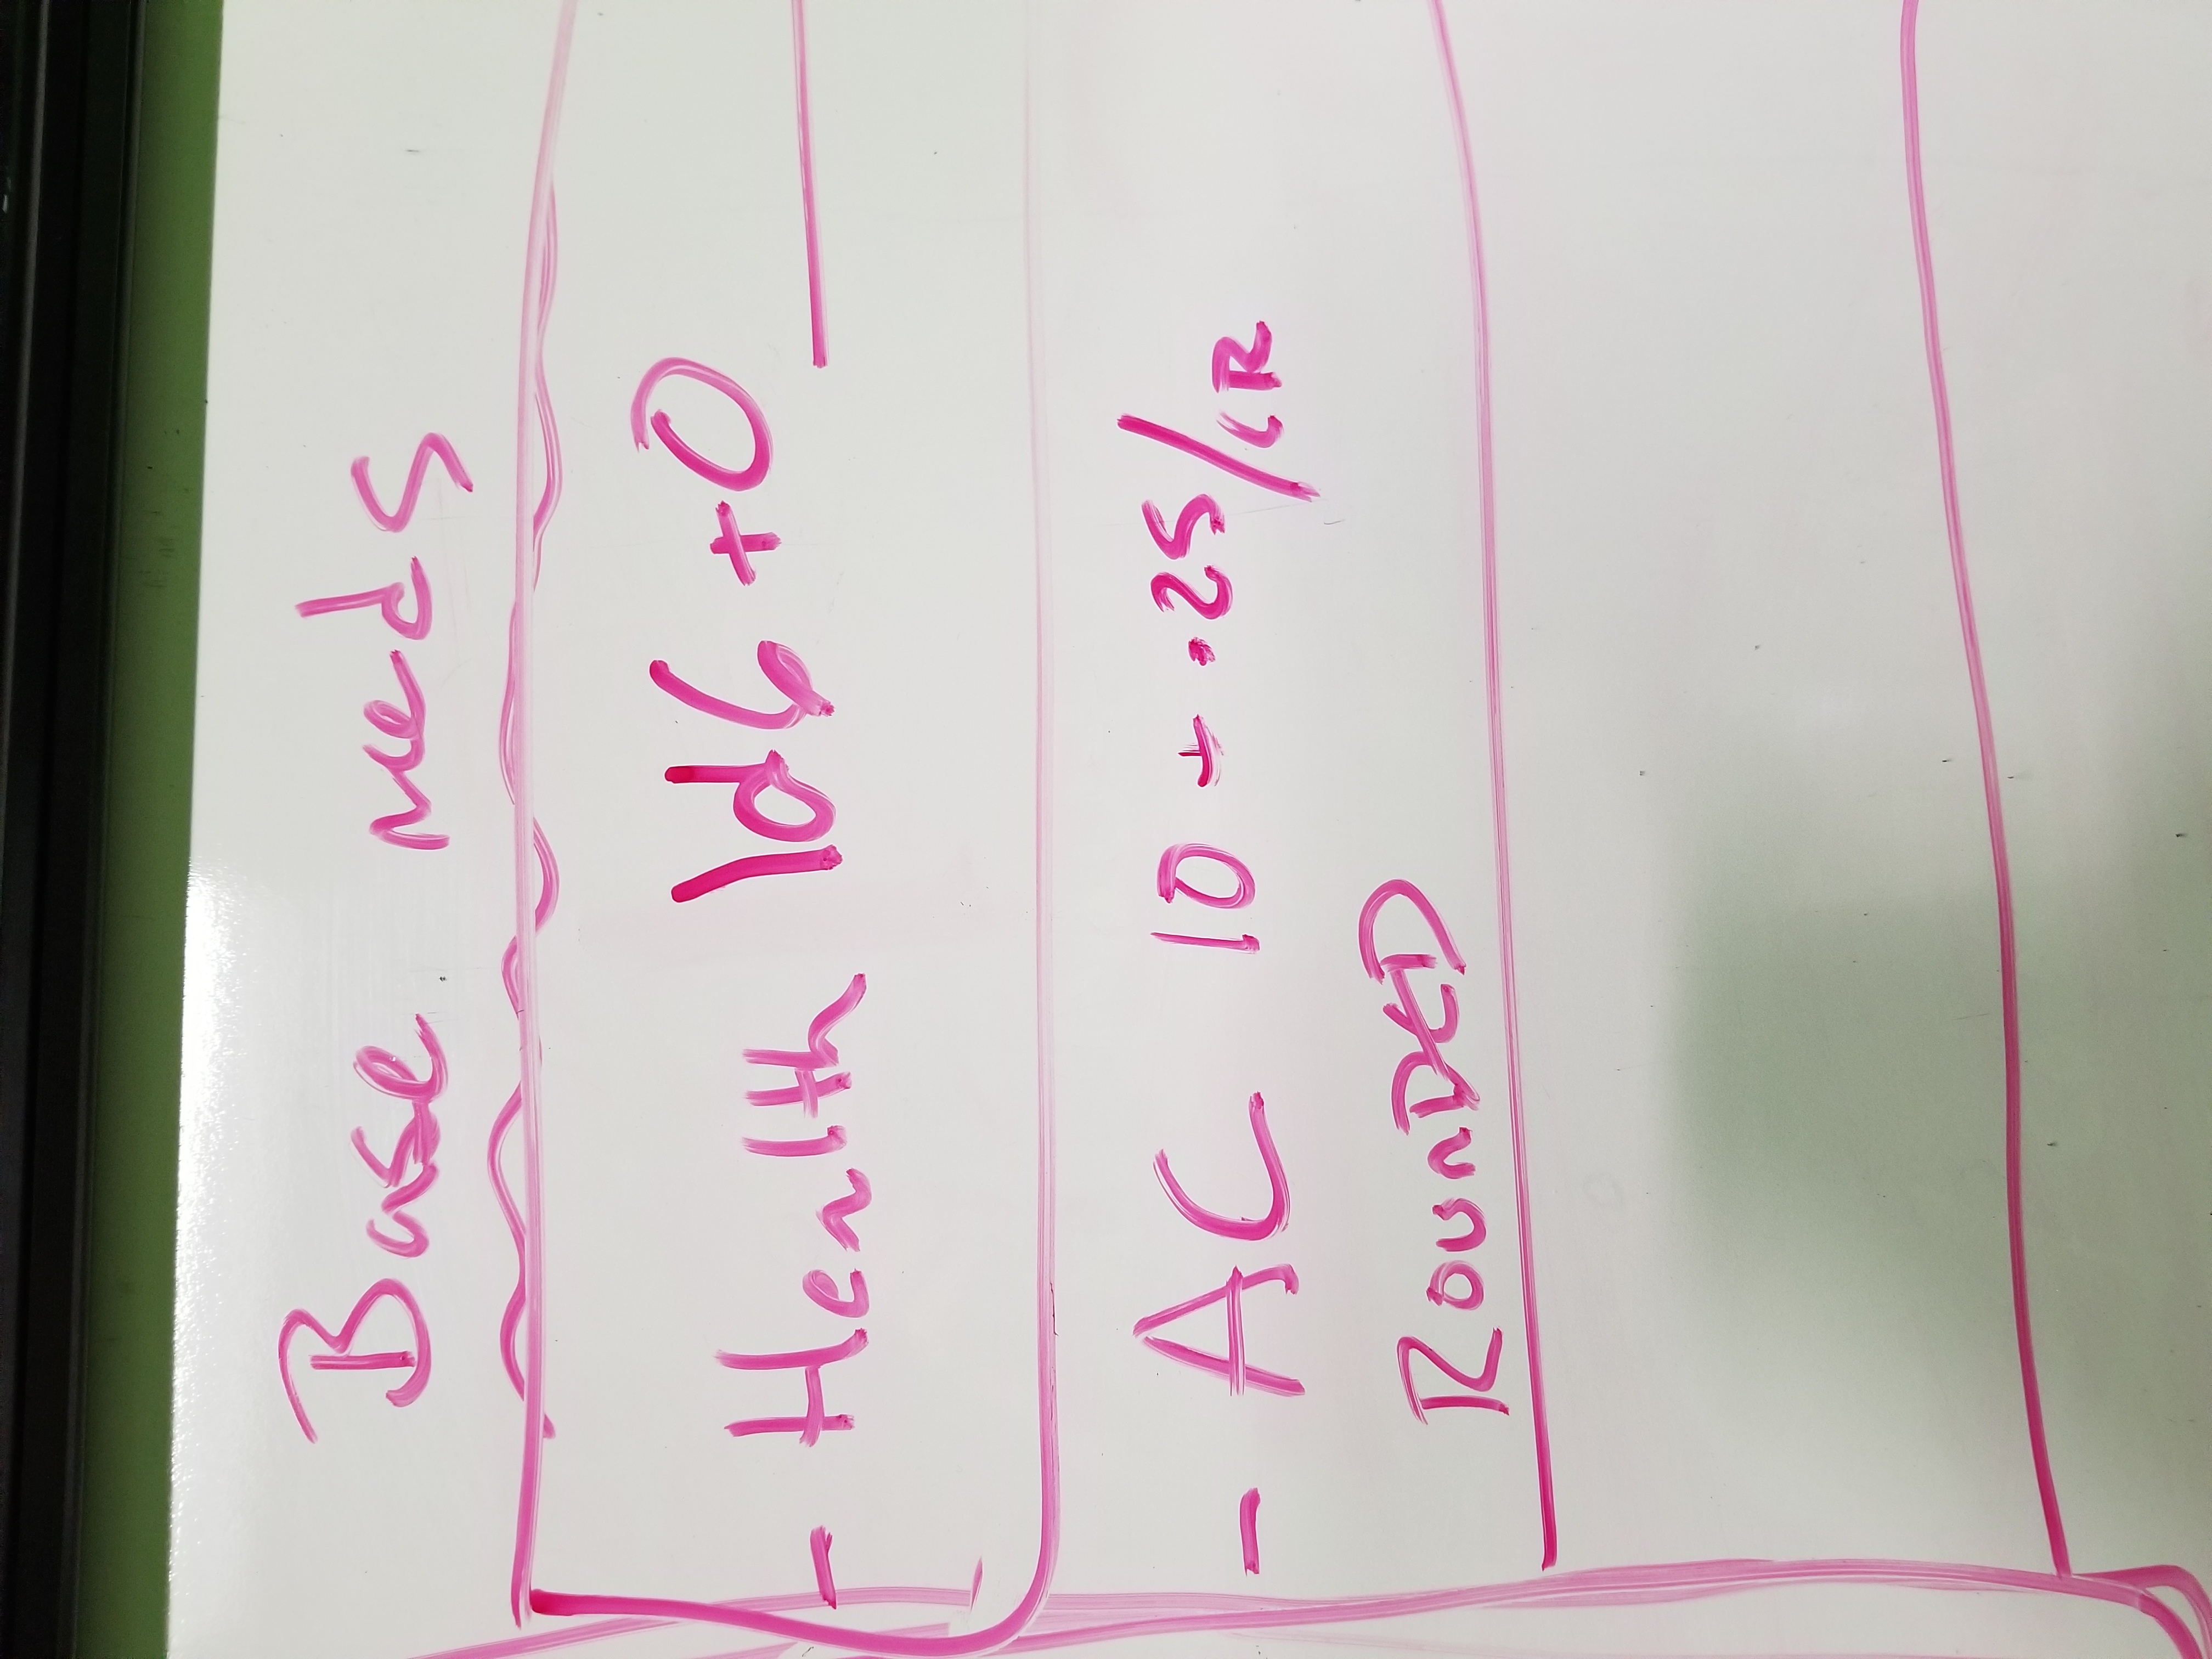 Base needs
- Health 1d6 +0
- AC 10 + .25/CR
ROUNDED